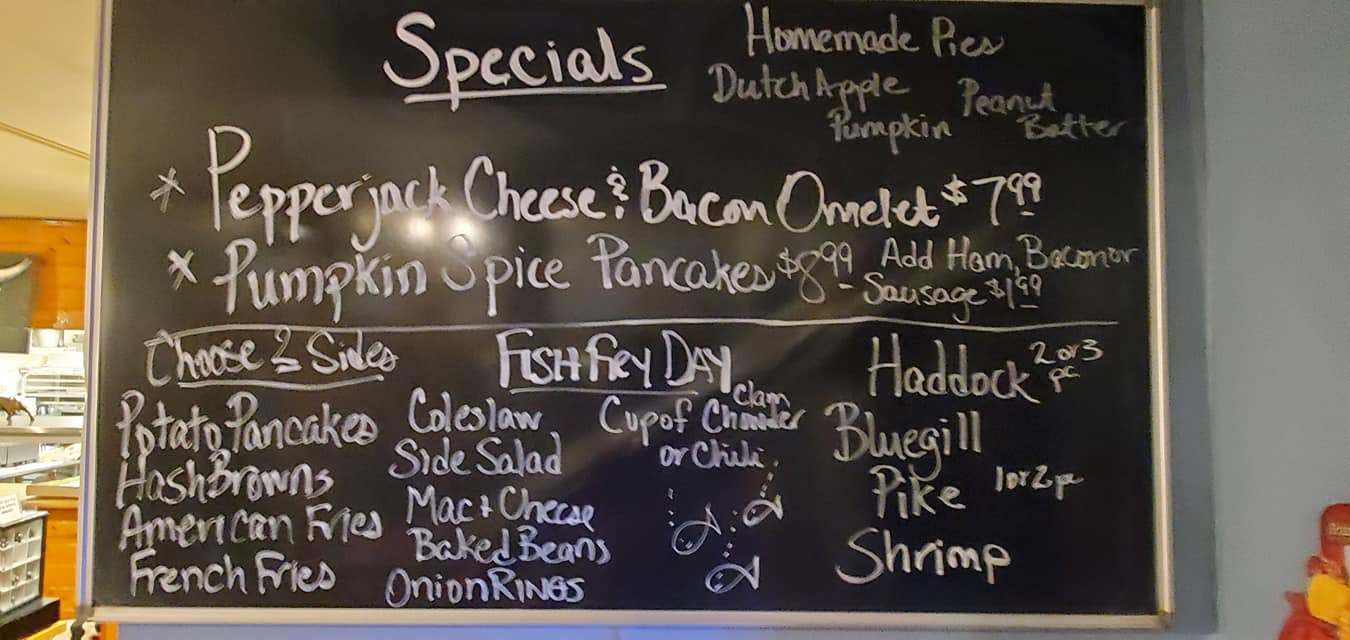 Specials
Homemade Pies
Dutch Apple
Peanut
Pumpkin
Butter
* Pepperjack Cheese & Bacon Omelet $7.99
* Pumpkin Spice Pancakes $8.99
Add Ham, Bacon or
Sausage $1.99
Choose 2 Sides
Potato Pancakes
HashBrowns
American Fries
French Fries
Coleslaw
Side Salad
Mac + Cheese
Baked Beans
Onion RiNGS
FISH FRY DAY
Clam
Cup of Chowder
or Chili
Haddock 2 or 3 pc
Bluegill
Pike 1 or 2 pc
Shrimp